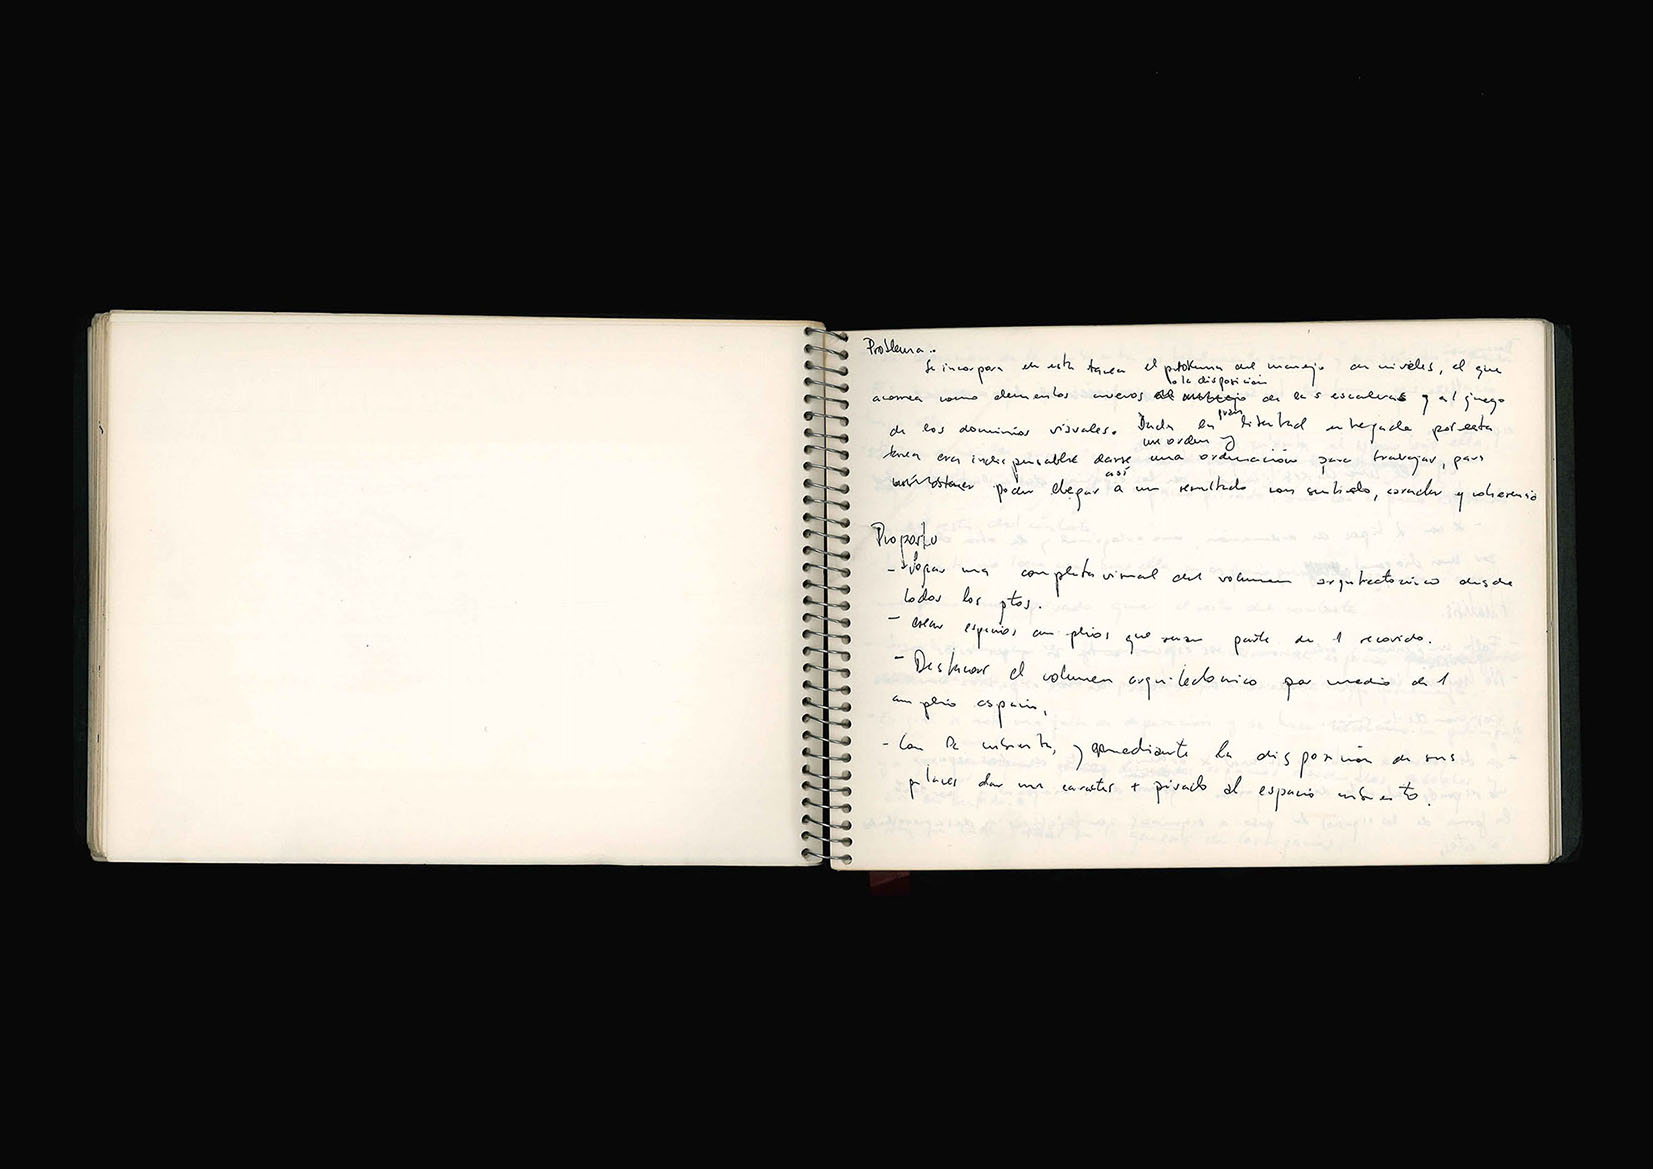 Problema..
Se incorpora en esta tarea el problema del manejo de niveles, el que
a la disposición
acarrea como elementos nuevos de las escaleras y el juego
gran
de los dominios visuales. Dada la libertad entregada por esta
un orden y
tarea era indispensable darse una ordenación para trabajar, para
así
poder llegar a un resultado con sentido, caracter y coherencia
Propósito
- Lograr una completa visual del volumen arquitectonico desde
todos los ptos.
- crear espacios amplios que sean parte de 1 recorrido.
- Destacar el volumen arquitectonico por medio de 1
amplio espacio.
- Con la cubierta, y mediante la disposición de sus
pilares dar un caracter + pivado al espacio cubierto.